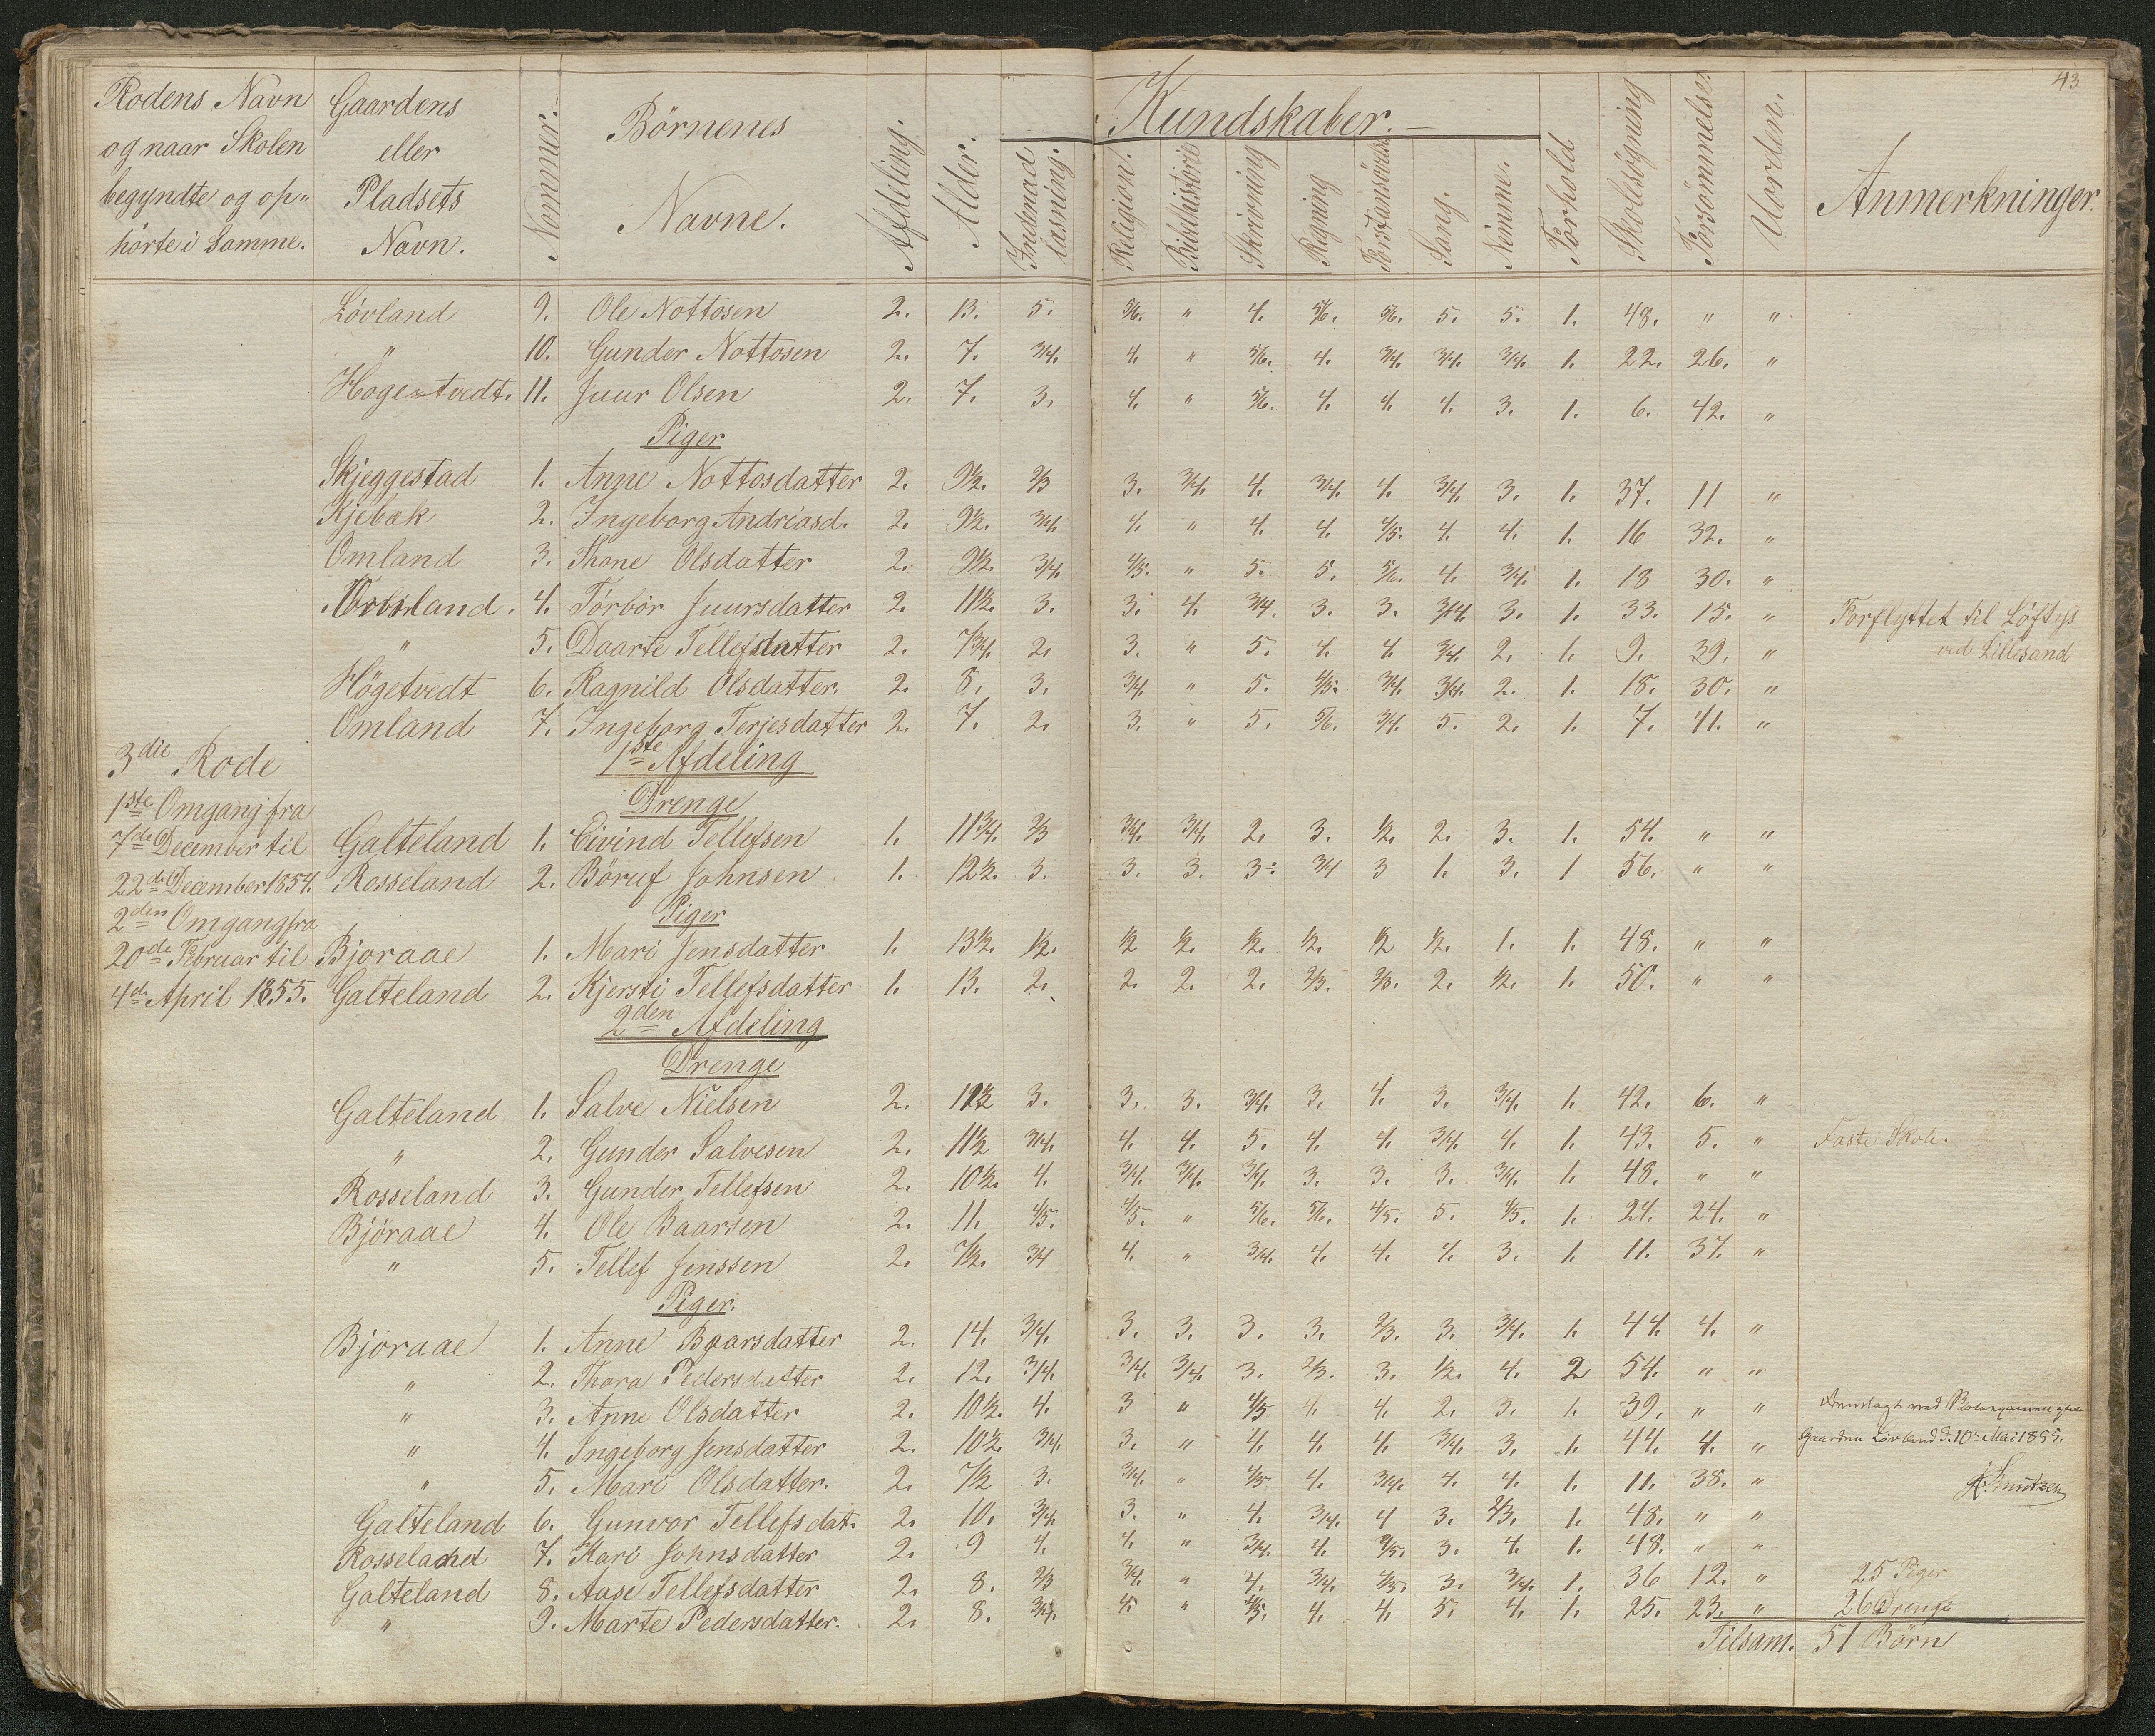 43
Rodens Navn og naar Skolen begyndte og op„ hörte i Samme. Gaardens eller Pladsets Navn. Nommer. Börnenes Navne. Afdeling. Alder. Indenad læsning. Kundskaber. Religion. Bibelhistorie Skrivning Regning Sang. Nemme. Forhold Skolesögning Forsömmelse. Uorden. Anmerkninger.
Lövland 9. Ole Nottosen 2. 13. 5. 5/6. " 4. 5/6. 5/6. 5. 5. 1. 48. " "
" 10. Gunder Nottosen 2. 7. 3/4. 4. " 5/6. 4. 3/4. 3/4. 3/4. 1. 22. 26. "
Hogetvedt. 11. Juur Olsen 2. 7. 3. 4. " 5/6. 4. 4. 4. 3. 1. 6. 42. "
Piger
Skjeggestad 1. Anne Nottosdatter 2. 9½. 2/3 3. 3/4. 4. 3/4. 4. 3/4. 3. 1. 37. 11 "
Kjebæk 2. Ingeborg Andriasd. 2. 9½. 3/4. 4. " 4. 4. 4/5. 4. 4. 1. 16 32. "
Omland 3. Thone Olsdatter 2. 9½. 3/4. 4/5. " 5. 5. 5/6. 4. 3/4. 1. 18 30. "
4. Törbör Juursdatter 2. 11½. 3. 3. 4. 3/4. 3. 3. 3/4. 3. 1. 33. 15. " Forflyttet til Løftys
" 5. Daarte Tellefsdatter 2. 7¾. 2. 3. " 5. 4. 4. 3/4. 2. 1. 9. 39. " ved Lillesand
Högetvedt 6. Ragnild Olsdatter. 2. 8. 3. 3/4 " 5. 4/5. 3/4. 3/4. 2. 1. 18. 30. "
Omland 7. Ingeborg Terjesdatter 2. 7. 2. 3. " 5. 5/6. 3/4. 5. 2. 1. 7. 41. "
3die Rode 1ste Afdeling
1ste Omgang fra Drenge
7de December til Galteland 1. Eivind Tellefsen 1. 11¾. 2/3 3/4. 3/4. 2. 3. ½. 2. 3. 1. 54. " "
22de December 1854. Rosseland 2. Böruf Johnsen 1. 12½. 3. 3. 3. 3. 3/4 3 1. 3. 1 56. " "
2den Omgang fra Piger
20de Februar til Bjoraae 1. Mari Jensdatter 1. 13½. ½. ½ ½. ½. ½. ½ ½. 1. 1. 48. " "
4de April 1855. Galteland 2. Kjersti Tellefsdatter 1. 13. 2. 2. 2. 2. 2/3. 2/3. 2. ½. 1. 50. " "
2den Afdeling
Drenge
Galteland 1. Salve Nielsen 2. 12½ 3. 3. 3. 3/4. 3. 4. 3. 3/4. 1. 42. 6. "
" 2. Gunder Salvesen 2. 11½ 3/4. 4. 4. 5. 4. 4. 3/4. 4. 1. 43. 5. " Faste Skole.
Rosseland 3. Gunder Tellefsen 2. 10½. 4. 3/4. 3/4. 3/4. 3. 3. 3. 3/4. 1. 48. " "
Björaae 4. Ole Baarsen 2. 11. 4/5. 4/5. " 5/6. 5/6. 4/5. 5. 4/5. 1. 24. 24. "
" 5. Tellef Jenssen 2. 7½. 3/4 4. " 3/4. 4. 4. 4. 3. 1. 11. 37. "
Piger.
Bjoraae 1. Anne Baarsdatter 2. 14. 3/4. 3. 3. 3. 3. 2/3. 3. 3/4. 1. 44. 4. "
" 2. Thora Pedersdatter 2. 12. 3/4. 3/4. 3/4. 3. 2/3. 3. ½. 4. 2 54. " "
" 3. Anne Olsdatter 2. 10½. 4. 3 " 4/5 4. 4. 2. 3. 1. 39. " "
" 4. Ingeborg Jensdatter 2. 10½. 3/4. 3. " 4. 4. 4. 3/4. 3. 1. 44. 4. " Gaarden Lövland d. 10de Mai 1855.
" 5. Mari Olsdatter. 2. 7½ 3. 3/4. " 4/5 4. 3/4. 4. 4. 1. 11. 38. " Knutzen
Galteland 6. Gunvor Tellefsdat. 2. 10. 3/4. 3. " 4. 3/4. 4 3. 2/3. 1. 48. " "
Rosseland 7. Kari Johnsdatter 2. 9 4. 4. " 3/4. 4. 4/5. 3. 4. 1. 48. " "
Galteland 8. Aase Tellefsdatter 2. 8. 2/3 3/4. " 4. 3/4. 4/5. 3. 3/4. 1. 36 12. " 25 Piger
" 9. Marte Pedersdatter. 2. 8. 3/4. 4. " 4/5. 4. 4. 5. 4. 1. 25. 23. " 26 Drenge
Tilsam. 51 Börn